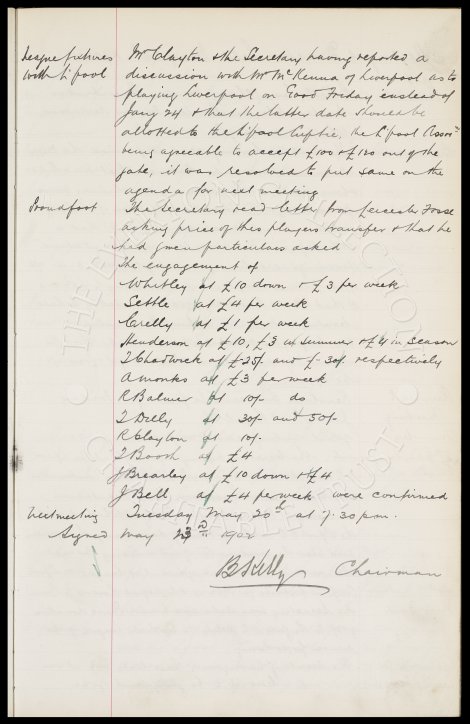 League fixtures Mr Clayton & the Secretary having reported a
with L'pool discussion with Mr McKenna of Liverpool as to
playing Liverpool on Good Friday instead of
Jany 24 & that the latter date should be
allotted to the L'pool Cuptie, the L'pool Assocn
being agreeable to accept £100 or £120 out of the
gate, it was resolved to put same on the
agenda for next meeting
Proudfoot The Secretary read letter from Leicester Fosse
asking price of this players transfer & that he
had given particulars asked
The engagement of
Whitley at £10 down & £3 per week
Settle at £4 per week
Crelly at £1 per week
Henderson at £10, £3 in summer & £4 in season
T Chadwick at £-25/- and £-30/- respectively
A Monks at £3 per week
R Balmer at 10/- do
T Dilly at 30/- and 50/-
R Clayton at 10/-
T Booth at £4
J Brearley at £10 down & £4
J Bell at £4 per week were confirmed
Next meeting Tuesday May 20th at 7.30 pm.
Signed May 23rd 1902
B Kelly Chairman
THE EVERTON COLLECTION
CHARITABLE TRUST